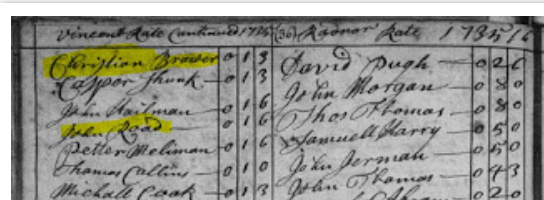 Vincent Rate Continued 1734 (36) Radnor Rate 1734/5 16
Christian Brower 0 1 3
Casper Shunk 0 1 3
John Hailman 0 1 6
John Road 0 1 6
Petter Meliman 0 1 6
Thomas Cullins 0 1 0
Michall Cook 0 1 3
David Pugh 0 2 6
John Morgan 0 8 0
Thos Thomas 0 8 0
Samuell Harry 0 5 0
John Jerman 0 5 0
John Thomas 0 4 3
Abram 0 2 0